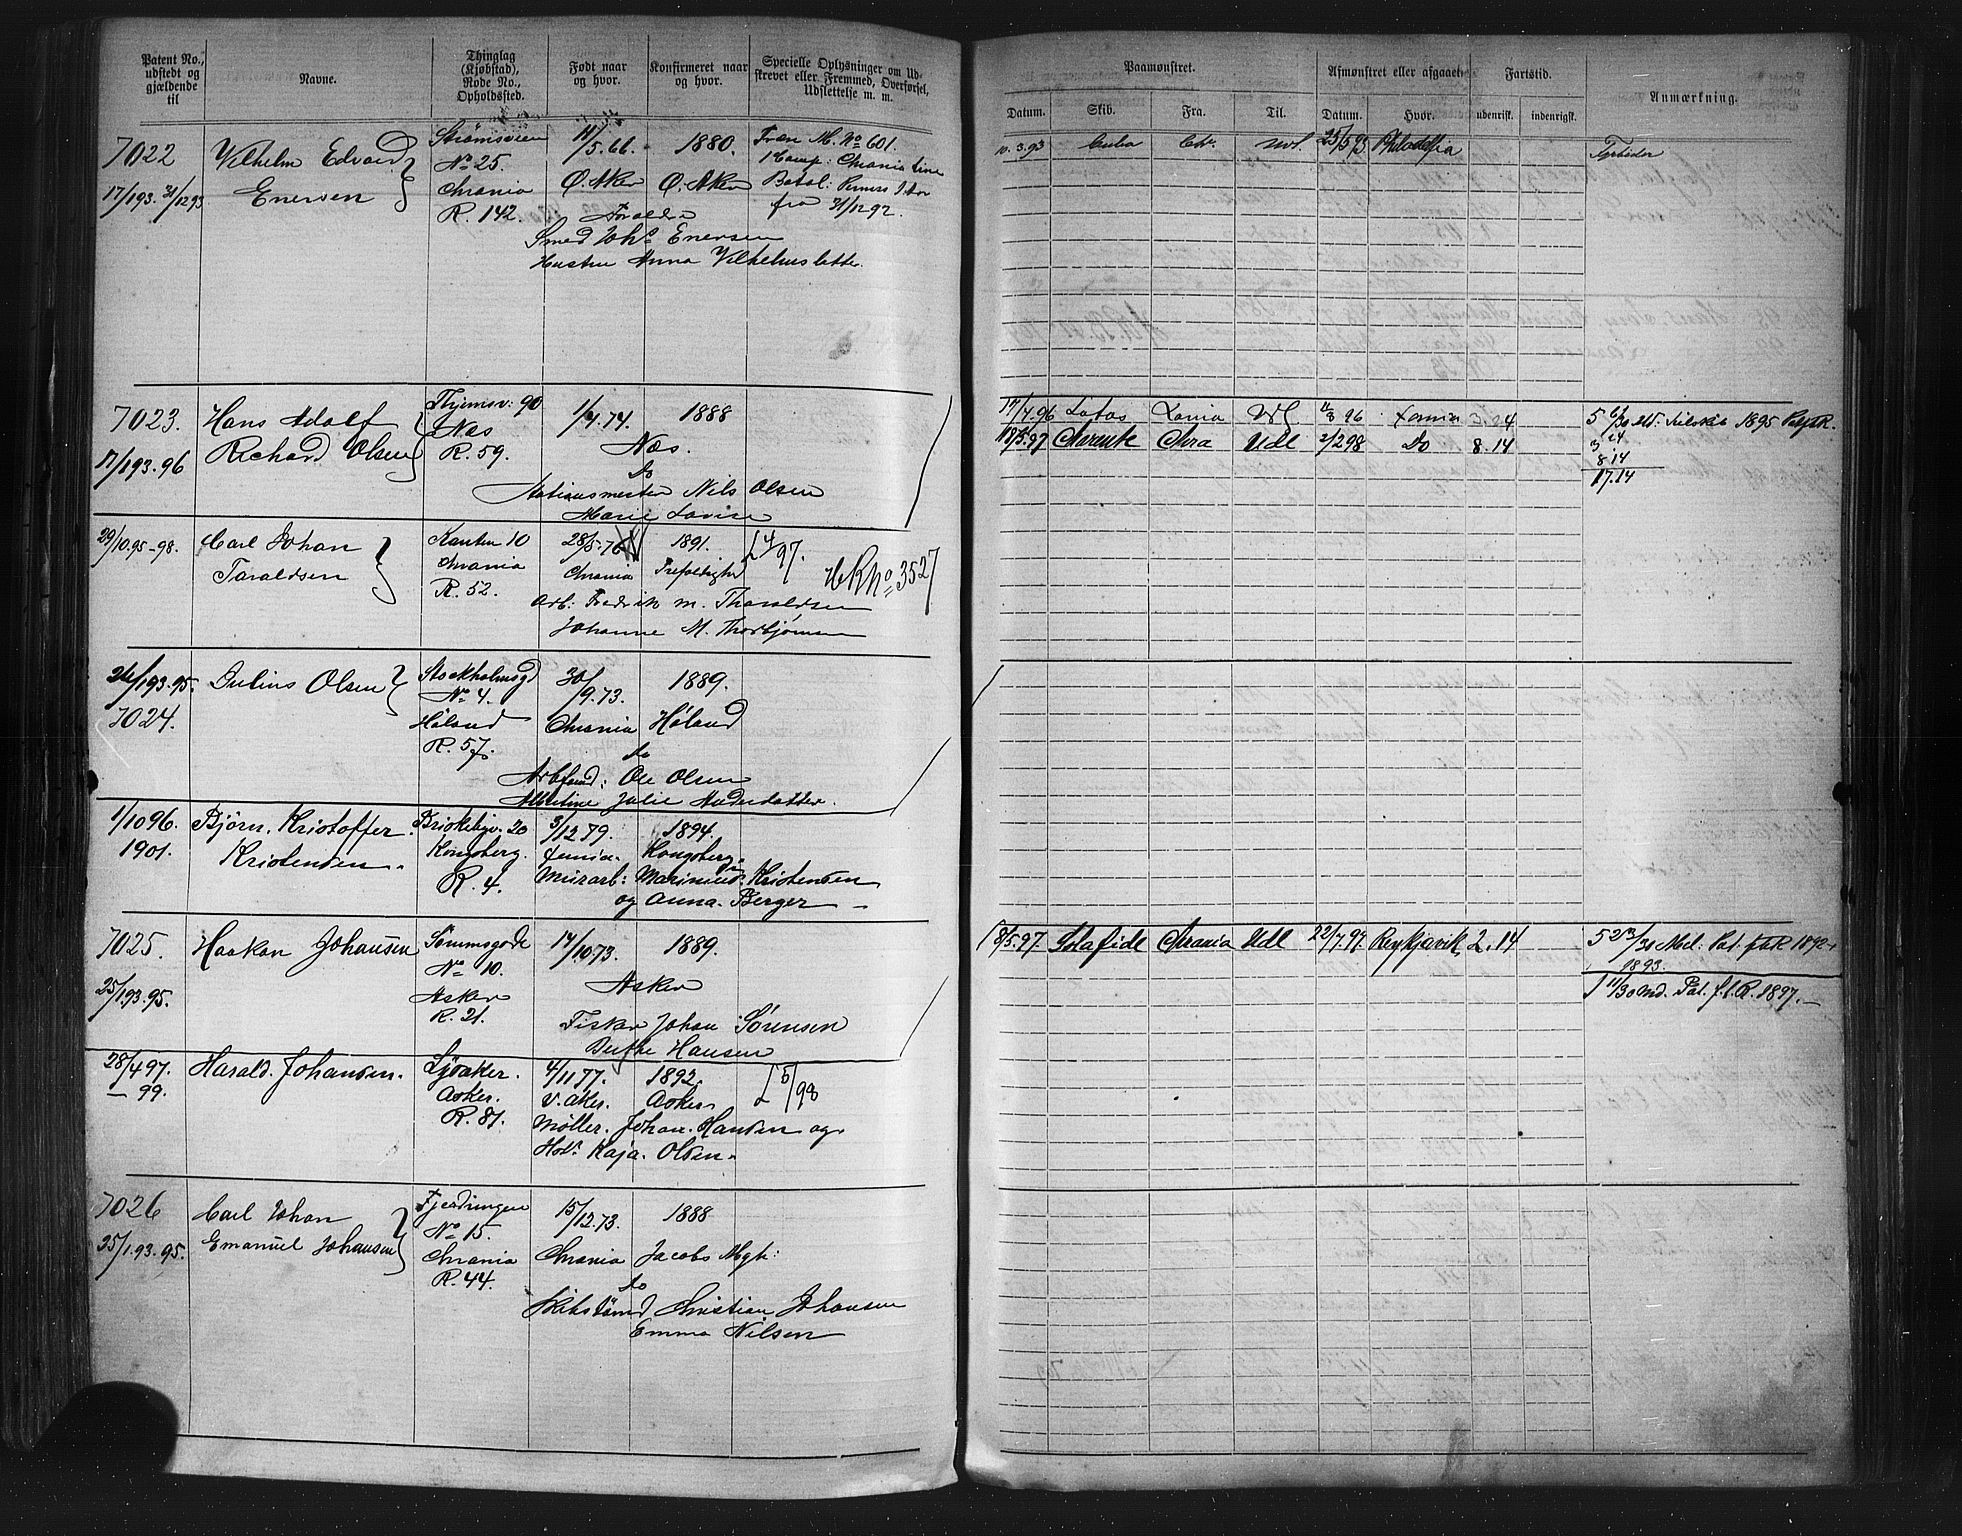 Patent No., udstedt og gjældende til
Navne.
Thinglag (Kjøbstad), Rode No., Opholdssted.
Født naar og hvor.
Konfirmeret naar og hvor.
Specielle Oplysninger om Udskrevet eller Fremmed, Overførsel, Udslettelse m. m.
7022
17/1 93. 31/12 93
Vilhelm Edvard
Enersen
Strømsveien
No 25.
Chrania
R. 142.
11/5.66.
Ø. Aker
1880.
Ø. Aker
M. No 601.
1 Comp: Chrania Linie
Batal:
fra 31/12 92.
Forældre
Smed Johs Enersen
Hustru Anna Vilhelmsdatter
7023.
17/1 93. 96
Hans Adolf
Richard Olsen
90
Næs
R. 59.
1/4.74.
1888
Næs.
Do
Stationsmester Nils Olsen
Marie Lovise
29/10.95-98.
Carl Johan
Taraldsen
10
Chrania
R. 52.
28/5.76
Chrania
1891.
Trefoldighd
L 4/97.
HR No 3527
Arb: Fredrik M. Tharaldsen
Johanne M. Thorbjørnsen
24/1 93. 95.
7024.
Julius Olsen
Stockholmsgd
No 4.
Høland
R. 57.
30/9.73.
Chrania
1889.
Høland
Do
Arbfmd: Ole Olsen
Albertine Julie
1/10 96.
1901.
Bjørn. Kristoffer.
Kristensen.
20
Kongsberg.
R. 4.
3/12 79.
1894.
Kongsberg.
Murarb: Marinius Kristensen
og Anna. Berger
7025.
25/1.93.95.
Haakon Johansen
No 10.
Asker
R. 21.
14/10.73.
1889.
Asker
Fisker Johan Sørensen
Berthe Hansen
28/4 97.
— 99.
Harald. Johansen.
Lysaker.
Asker.
R. 81.
4/11 77.
V. Aker.
1892.
Asker.
L 5/98
Møller. Johan. Hansen og
Kaja. Olsen.
7026
25/1.93.95.
Carl Johan
Emanuel Johansen
Fjerdringen
No 15.
Chrania
R. 44.
15/12.73.
Chrania
1888
Jacobs Mgh:
Do
Skibstømmd Christian Johansen
Emma Nilsen
Paamønstret.
Afmønstret eller afgaaet.
Fartstid.
Anmærkning.
Datum.
Skib.
Fra.
Til.
Datum.
Hvor.
udenrisk.
indenrigsk.
10.3.93 Cuba Chr. Udl 25/5 93 Philadelfia
Fyrbøder
17/7.96 Lotos Udl 96 24
18/5.97 Chra Udl 2/2 98 Do 8.14
1895
8.14
17.14
18/5.97. Solafide Chrania Udl 22/7.97. Reykjavik 2.14
5 23/30 Md: Pat. f.t.R 1892-
1893.
1 11/30 Md. Pat. f.t.R. 1897.